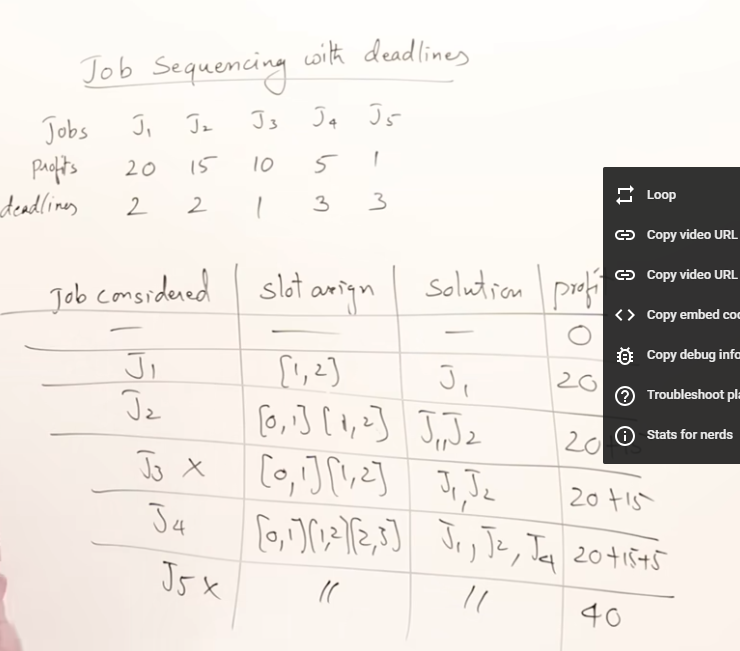 Job Sequencing with deadlines
Jobs J1 J2 J3 J4 J5
profits 20 15 10 5 1
deadlines 2 2 1 3 3
Job considered slot assign Solution profit
— — — 0
J1 [1,2] J1 20
J2 [0,1] [1,2] J1,J2 20+15
J3 × [0,1][1,2] J1,J2 20+15
J4 [0,1][1,2][2,3] J1, J2, J4 20+15+5
J5 × // // 40
Loop
Copy video URL
Copy video URL
Copy embed co
Copy debug info
Troubleshoot pla
Stats for nerds